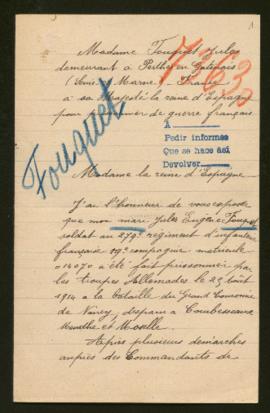 Madame Fouquet Jules
demeurant à Perthe en Gatinais
(Seine & Marne) France
a sa Majesté la reine d'Espagne
pour prisonnier de guerre français
7363
A
Pedir informes
Que se hace así
Devolver
Fouquet
Madame la reine d'Espagne
J'ai l'honneur de vous exposer
que mon mari Jules Eugène Fouquet
soldat au 279e régiment d'infanterie
française 19e compagnie matricule
014070 a été fait prisonnier par
les troupes Allemandes le 25 août
1914 a la bataille du Grand Couronné
de Nancy, disparu a Courbesseaux
Meurthe et Moselle
Après plusieurs démarches
auprès des Commandants de